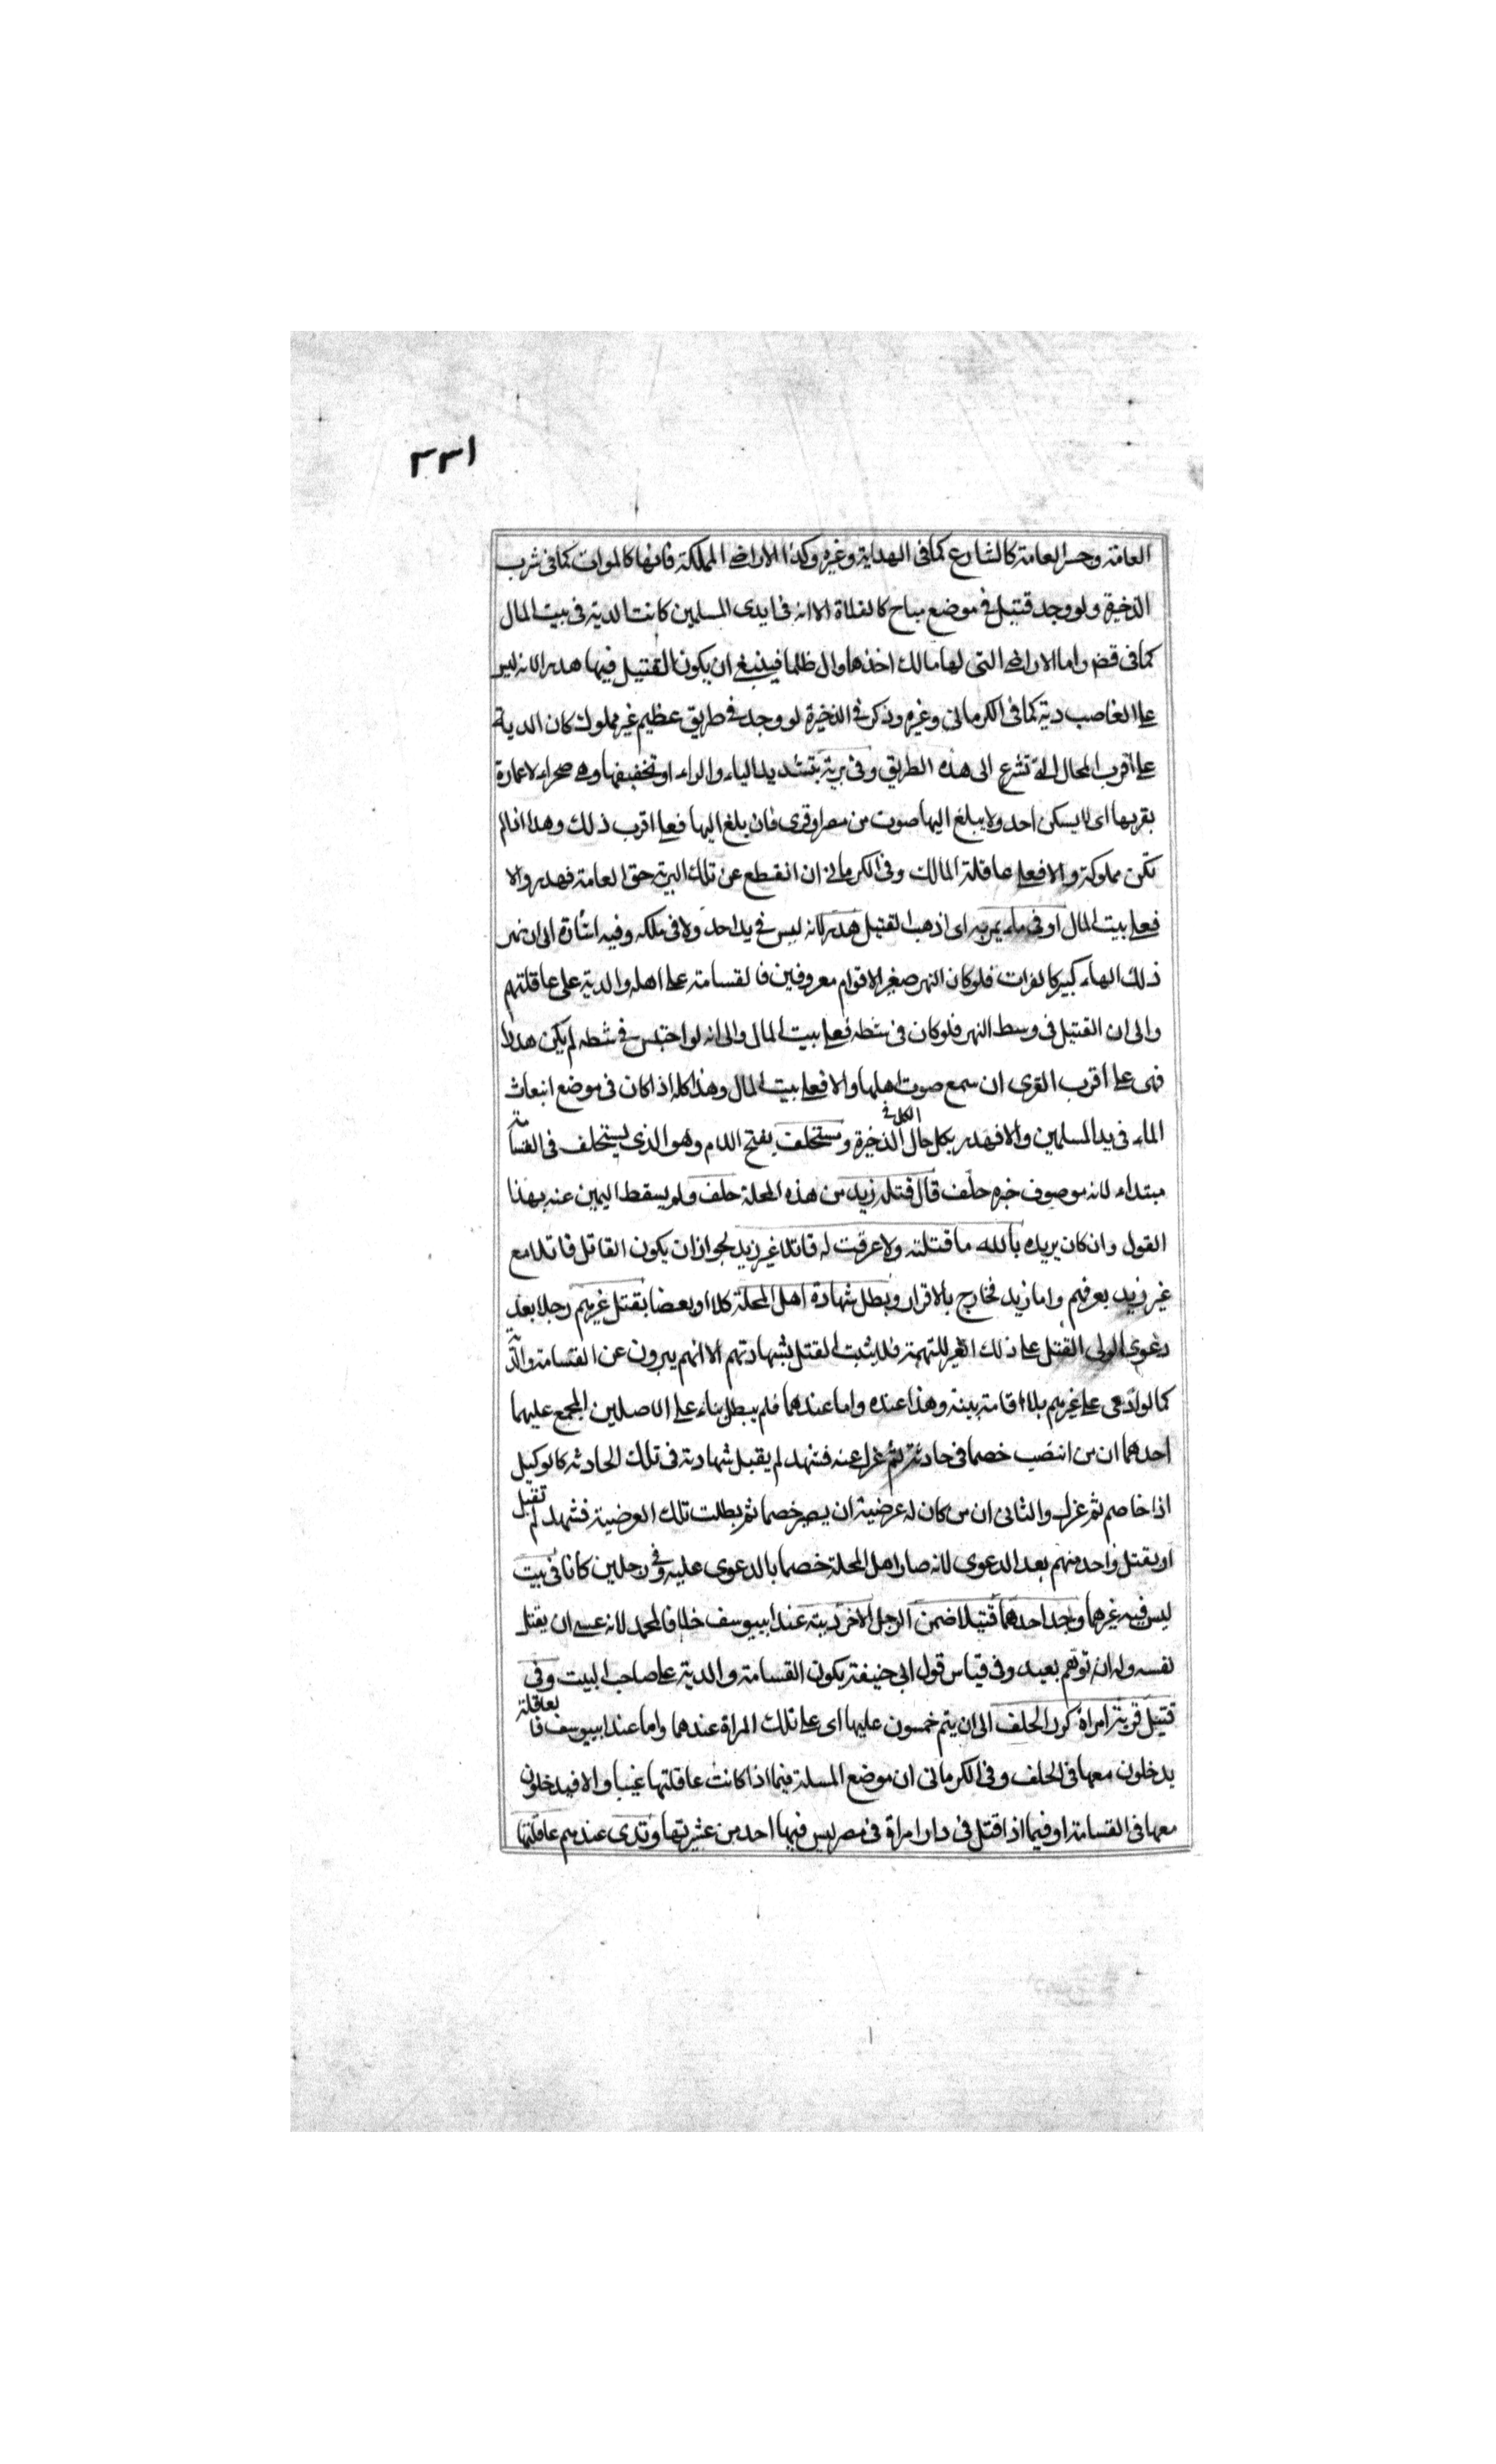 ١٣٣
العامة وجسر العامة كالشارع كما في الهداية وغيره وكذا الاراضى المملكة فانها كالموات كما في شرب
الذخيرة ولو وجد قتيل في موضع مباح كالفلاة الا انه في ايدى المسلمين كانت الدية في بيت المال
كما في قضى واما الاراضى التى لها مالك اخذها وال ظلما فينبغى ان يكون القتيل فيها هدر الانه ليس
على الغاصب دية كما في الكرمانى وغيره وذكر في الذخيرة لو وجد في طريق عظيم غير مملوك كان الدية
على اقرب المحال التى تشرع الى هذه الطريق وفى برية بتشديد الياء والراء او تخفيفها وهى صحراء لا عمارة
بقربها اى لا يسكن احد ولا يبلغ اليها صوت من مصر او قرى فان بلغ اليها فعلى اقرب ذلك وهذا اذا لم
تكن مملوكة والا فعلى عاقلة المالك وفى الكرمانى ان انقطع عن تلك البرية حق العامة فهدر والا
فعلى بيت المال او فى ماء يمر به اى اذهب القتيل هدر لانه ليس في يد احد ولا فى ملكه وفيه اشارة الى ان نهر
ذلك الماء كبير كالفرات فلو كان النهر صغير الاقوام معروفين فالقسامة على اهله والدية على عاقلتهم
والى ان القتيل فى وسط النهر فلو كان فى شطه فعلى بيت المال والى انه لو احتبس في شطه لم يكن هدرا
فهى على اقرب القرى ان سمع صوت اهلها والا فعلى بيت المال وهذا كله اذا كان فى موضع انبعاث
الماء فى يد المسلمين والا فهدر بكل حال الكل في الذخيرة ومستحلف بفتح اللام وهو الذى يستحلف فى القسامة
مبتداء لانه موصوف خبره حلف قال قتله زيد من هذه المحلة حلف ولم يسقط اليمين عنه بهذا
القول وان كان يريده بالله ما قتلته ولا عرفت له قاتلا غير زيد لجواز ان يكون القاتل قاتلا مع
غير زيد بعرفهم واما زيد فخارج بالاقرار وبطل شهادة اهل المحلة كلا او بعضا بقتل غيرهم رجلا بعد
دعوى الولى القتل على ذلك الغير للتهمة فلا يثبت القتل بشهادتهم الا انهم يبرون عن القسامة والدية
كما لو ادعى على غيرهم بلا اقامة بينة وهذا عنده واما عندهما فلم يبطل بناء على الاصلين المجمع عليهما
احدهما ان من انتصب خصما فى حادثة ثم عزل عنه فشهد لم يقبل شهادته فى تلك الحادثه كالوكيل
اذا خاصم ثم عزل والثانى ان من كان له عرضية ان يصير خصما ثم بطلت تلك العرضية فشهد لم تقبل
او بقتل واحد منهم بعد الدعوى لانه صار اهل المحلة خصما بالدعوى عليه وفى رجلين كانا فى بيت
ليس فيه غيرهما وجد احدهما قتيلا ضمن الرجل الآخر ديته عند ابيوسف خلافا لمحمد لانه عسى ان يقتل
نفسه وله ان توهم بعيد وفى قياس قول ابى حنيفة يكون القسامة والدية على صاحب البيت وفى
قتيل قرية امراة كرر الحلف الى ان يتم خمسون عليها اى على تلك المراة عندهما واما عند ابيوسف فالعاقلة
يدخلون معها فى الحلف وفى الكرمانى ان موضع المسلة فيما اذا كانت عاقلتها غيبا والا فيدخلون
معها فى القسامة او فيما اذا قتل فى دار امراة فى مصر ليس فيها احد من عشيرتها وتدى عندهم عاقلتها